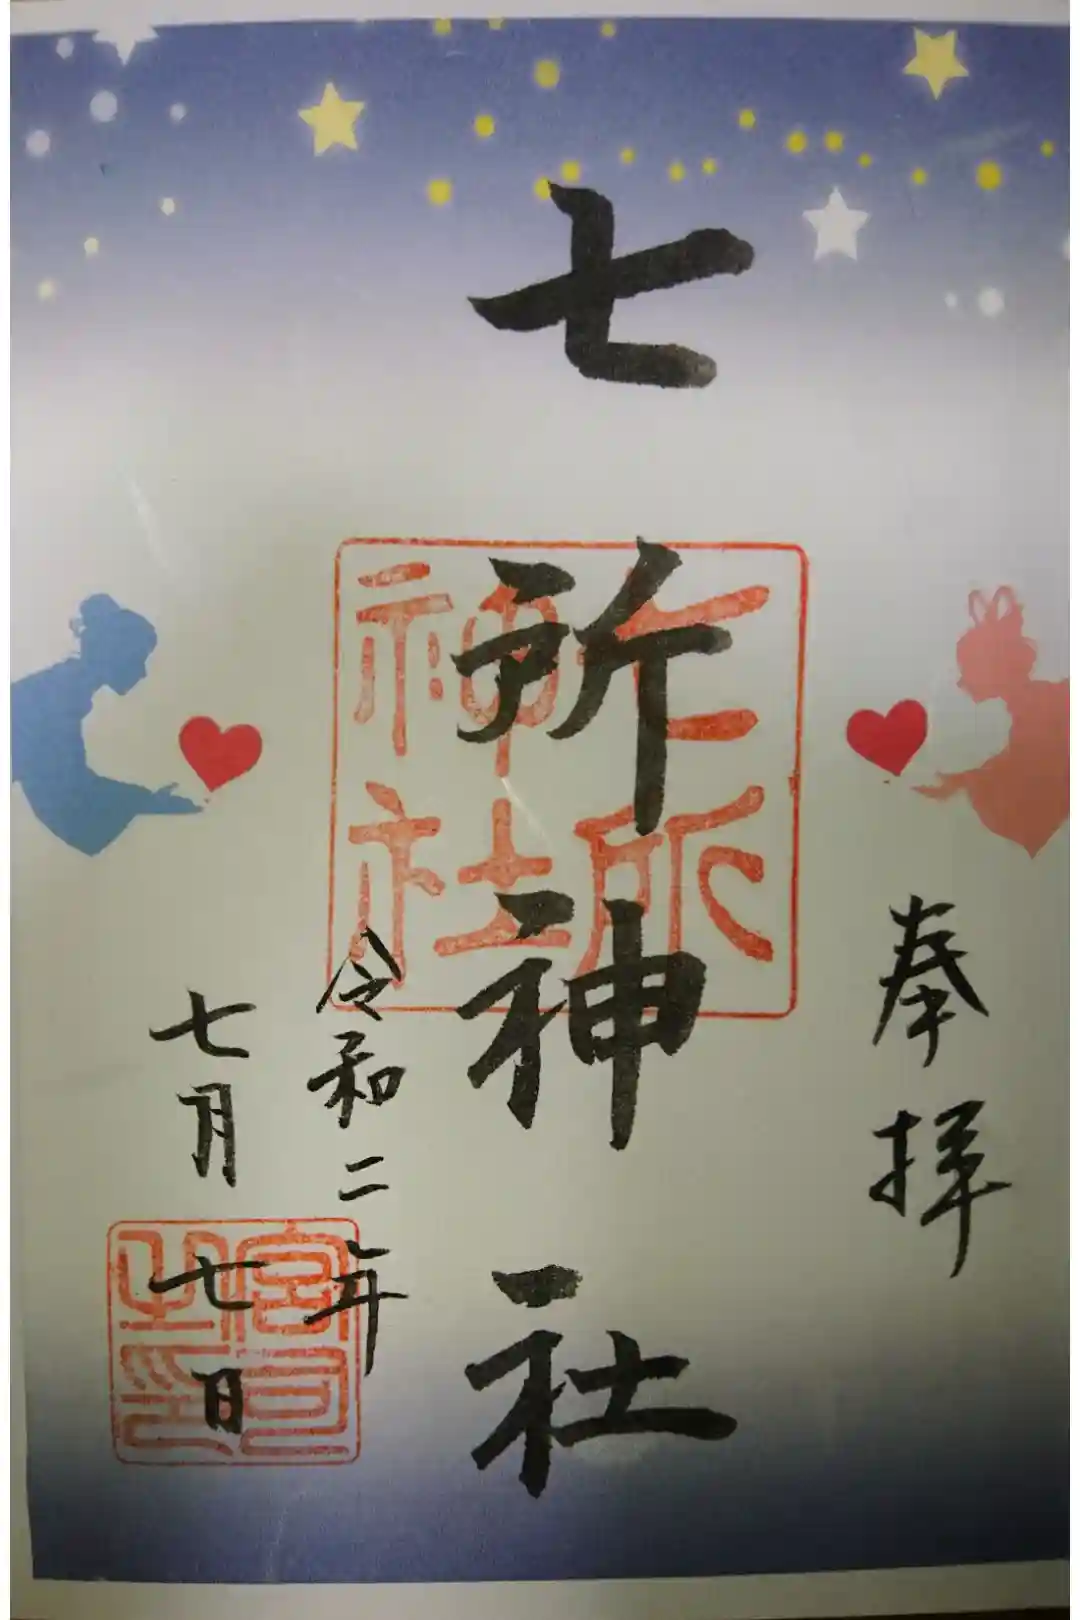 奉拝
七所神社
七所神社
令和二年
七月七日
宮司之印